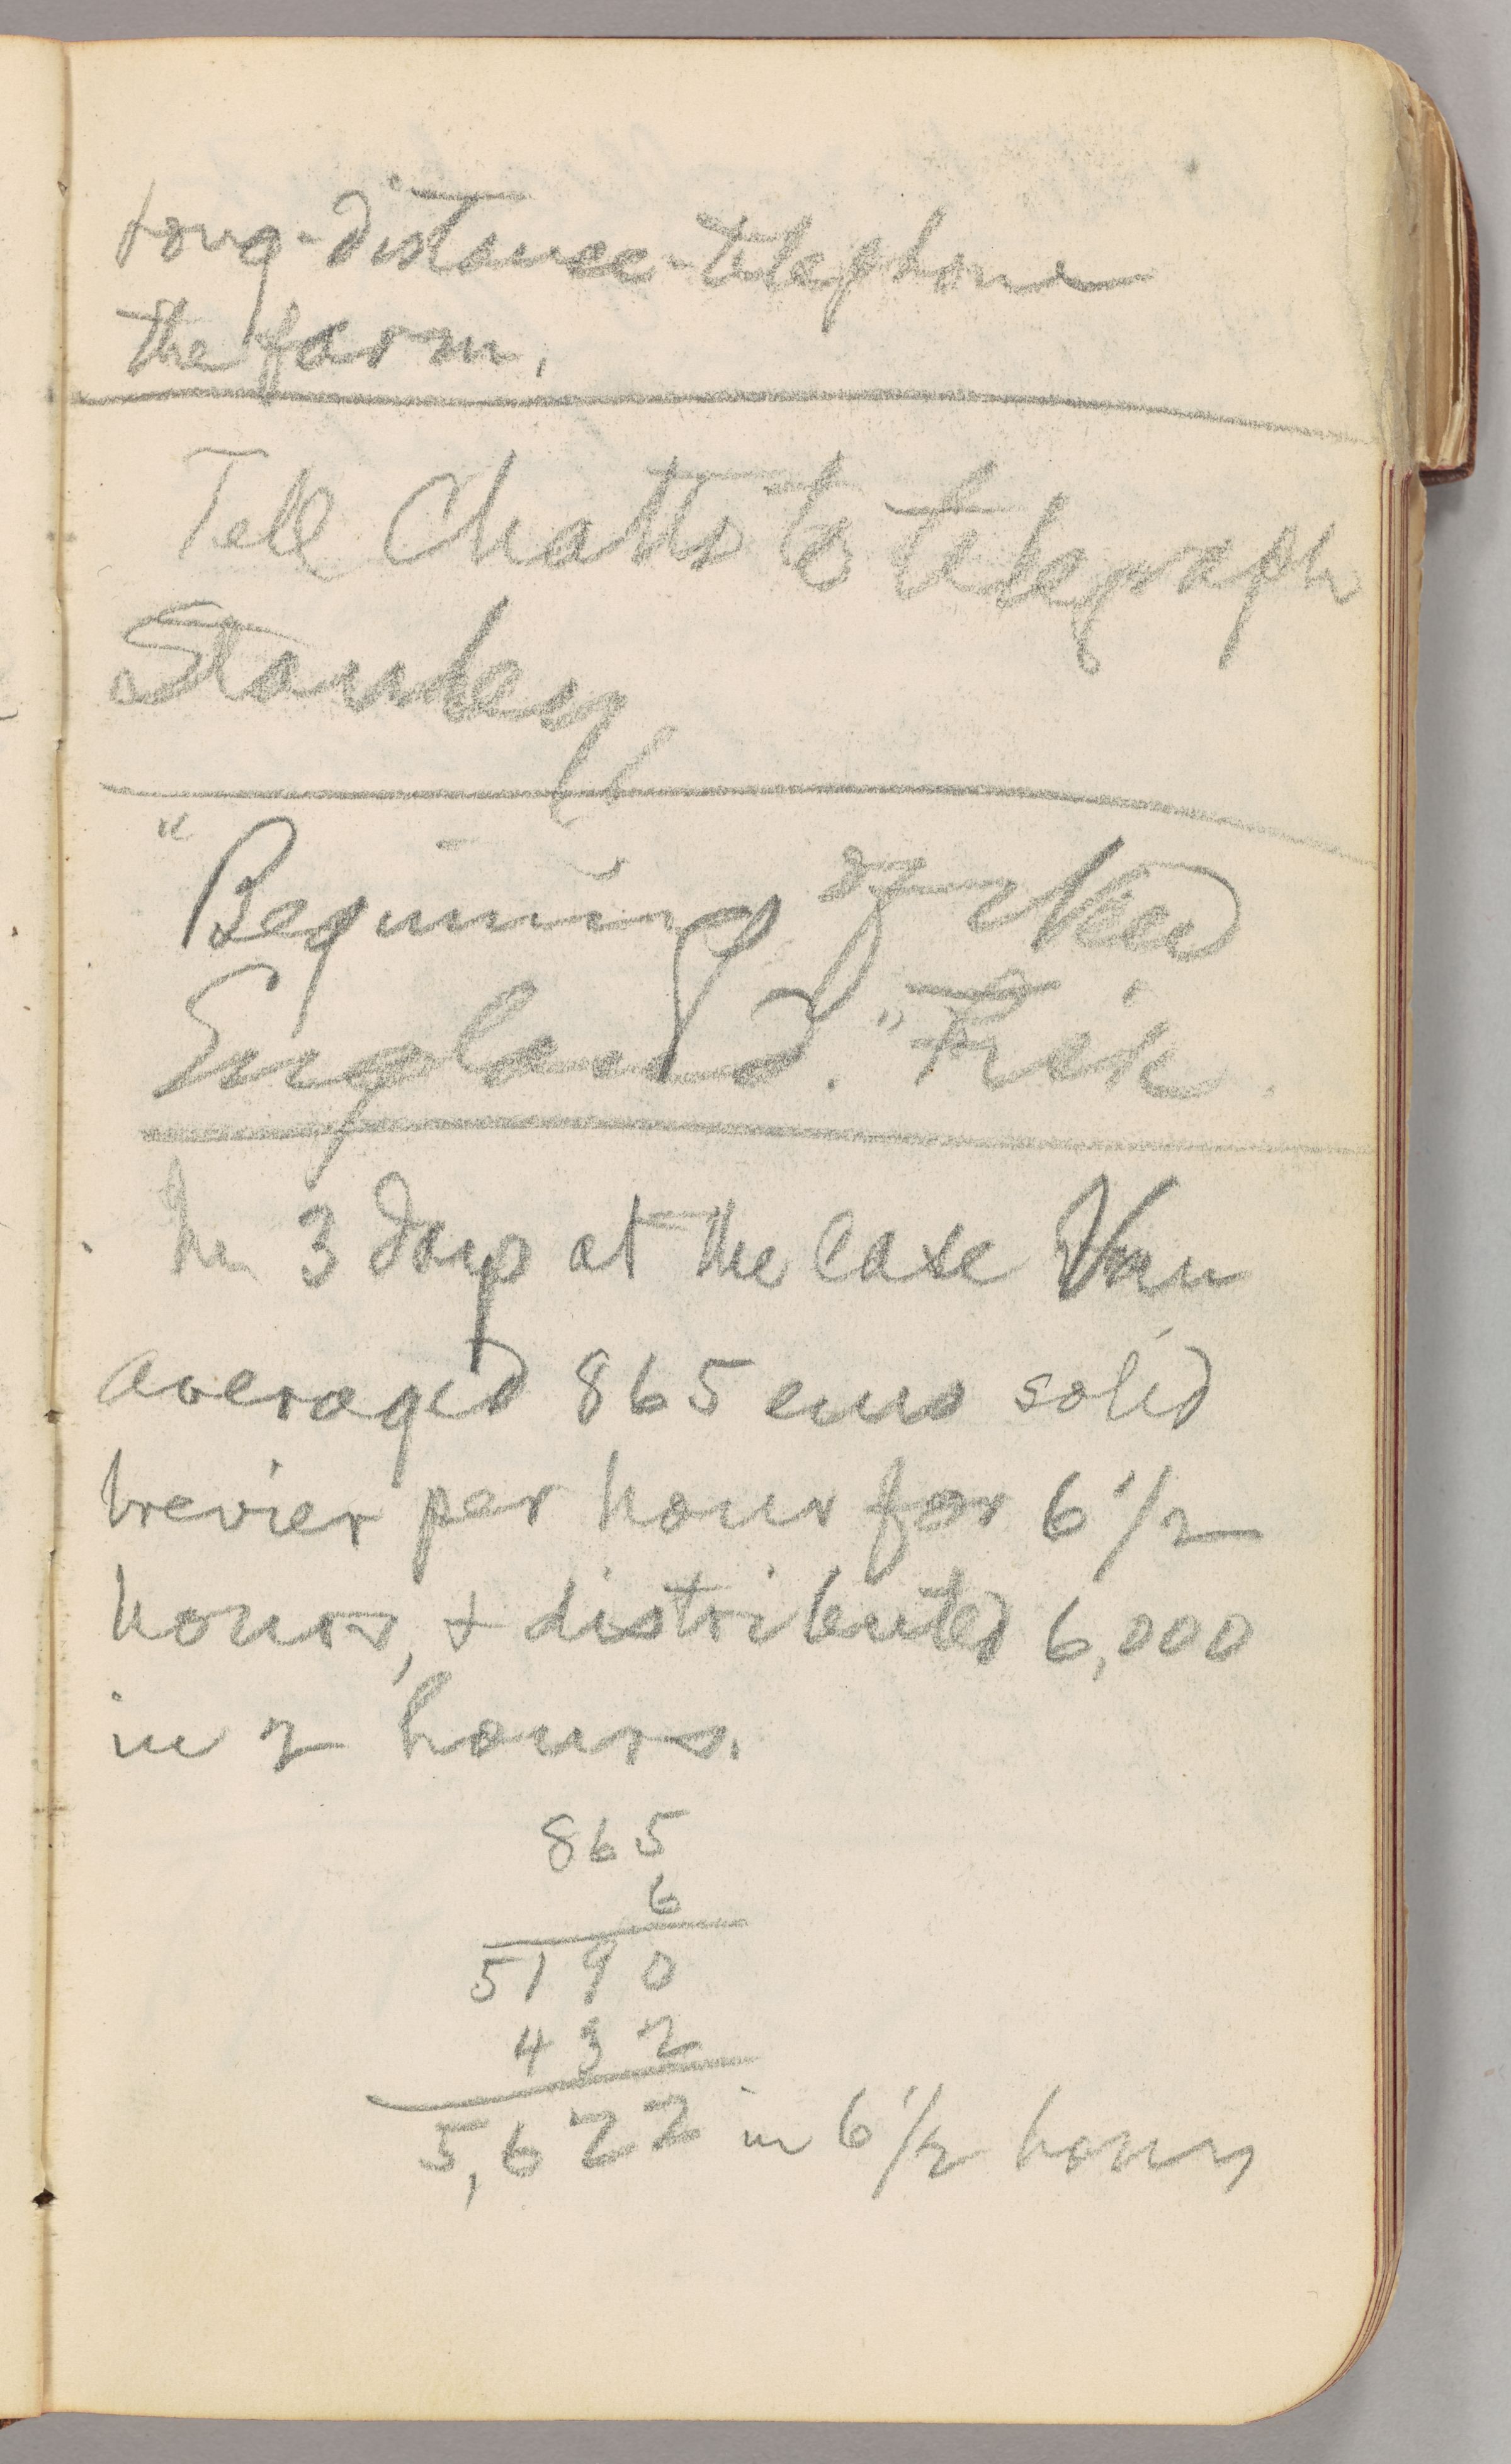 long-distance-telephone
the farm.
Tell Chatto to telegraph
Stanley
"Beginning of New
England." Fisk.
In 3 days at the case Van
averaged 865 ems solid
brevier per hour for 6 1/2
hours, & distributed 6,000
in 2 hours.
865
6
5190
432
5,622 in 6 1/2 hours